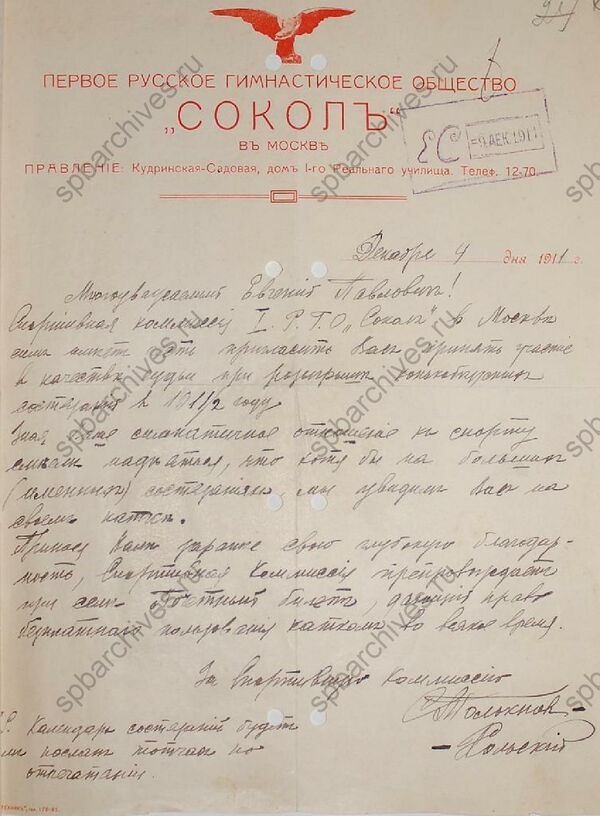 ПЕРВОЕ РУССКОЕ ГИМНАСТИЧЕСКОЕ ОБЩЕСТВО
„СОКОЛЪ“
ВЪ МОСКВѢ
ПРАВЛЕНІЕ: Кудринская-Садовая, домъ 1-го Реальнаго училища. Телеф. 12-70.
ЕС -9 ДЕК. 1911
Декабря 4 дня 1911 г.
Многоуважаемый Евгеній Павловичъ!
Спортивная коммиссія I. Р. Г. О. „Соколъ" въ Москвѣ
симъ имѣетъ честь пригласить Васъ принять участіе
въ качествѣ судьи при розыгрышѣ конькобѣжныхъ
состязаній въ 1911/2 году.
Зная Ваше симпатичное отношеніе къ спорту
смѣемъ надѣяться, что хотя бы на большихъ
(именныхъ) состязаніяхъ, мы увидимъ Васъ на
своемъ каткѣ.
Принося Вамъ заранѣе свою глубокую благодар-
ность, Спортивная Коммиссія препровождаетъ
при семъ почетный билетъ, дающій право
безплатнаго пользованія каткомъ во всякое время.
За Спортивную Коммиссію
P. Календарь состязаній будетъ
посланъ тотчасъ по
отпечатаніи.
spbarchives.ru